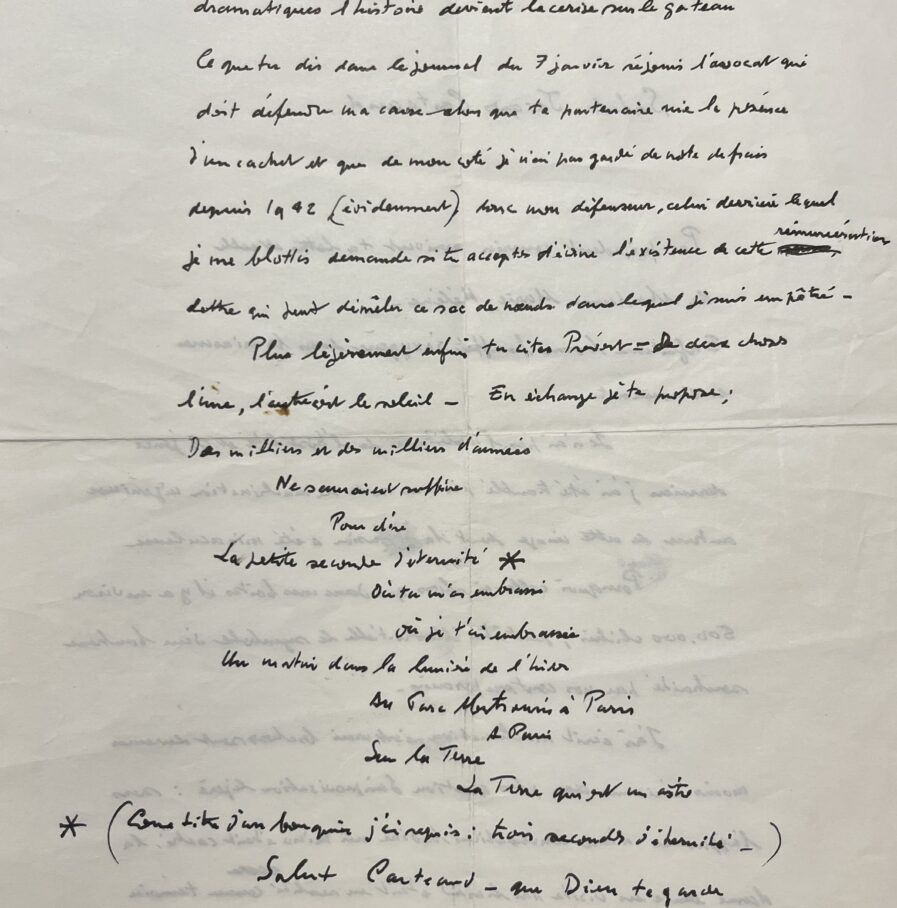 dramatiques l'histoire devient la cerise sur le gateau
Ce que tu dis dans le journal du 7 janvier réjouis l'avocat qui
doit défendre ma cause alors que ta partenaire nie la présence
d'un cachet et que de mon coté je n'ai pas gardé de note de frais
depuis 1942 (évidemment) donc mon défenseur, celui derrière lequel
je me blottis demande si tu acceptes d'écrire l'existence de cette rémunération
dette qui peut démêler ce sac de nœuds dans lequel je suis empêtré –
Plus légèrement enfin tu cites Prévert = De deux choses
l'une, l'autre c'est le soleil – En échange je te propose ;
Des milliers et des milliers d'années
Ne sauraient suffire
Pour dire
La petite seconde d'éternité *
Où tu m'as embrassé
où je t'ai embrassée
Un matin dans la lumière de l'hiver
Au Parc Montsouris à Paris
A Paris
Sur la Terre
La Terre qui est un astre
* (Comme titre d'un bouquin j'ai repris : trois secondes d'éternité –)
Salut – que Dieu te garde